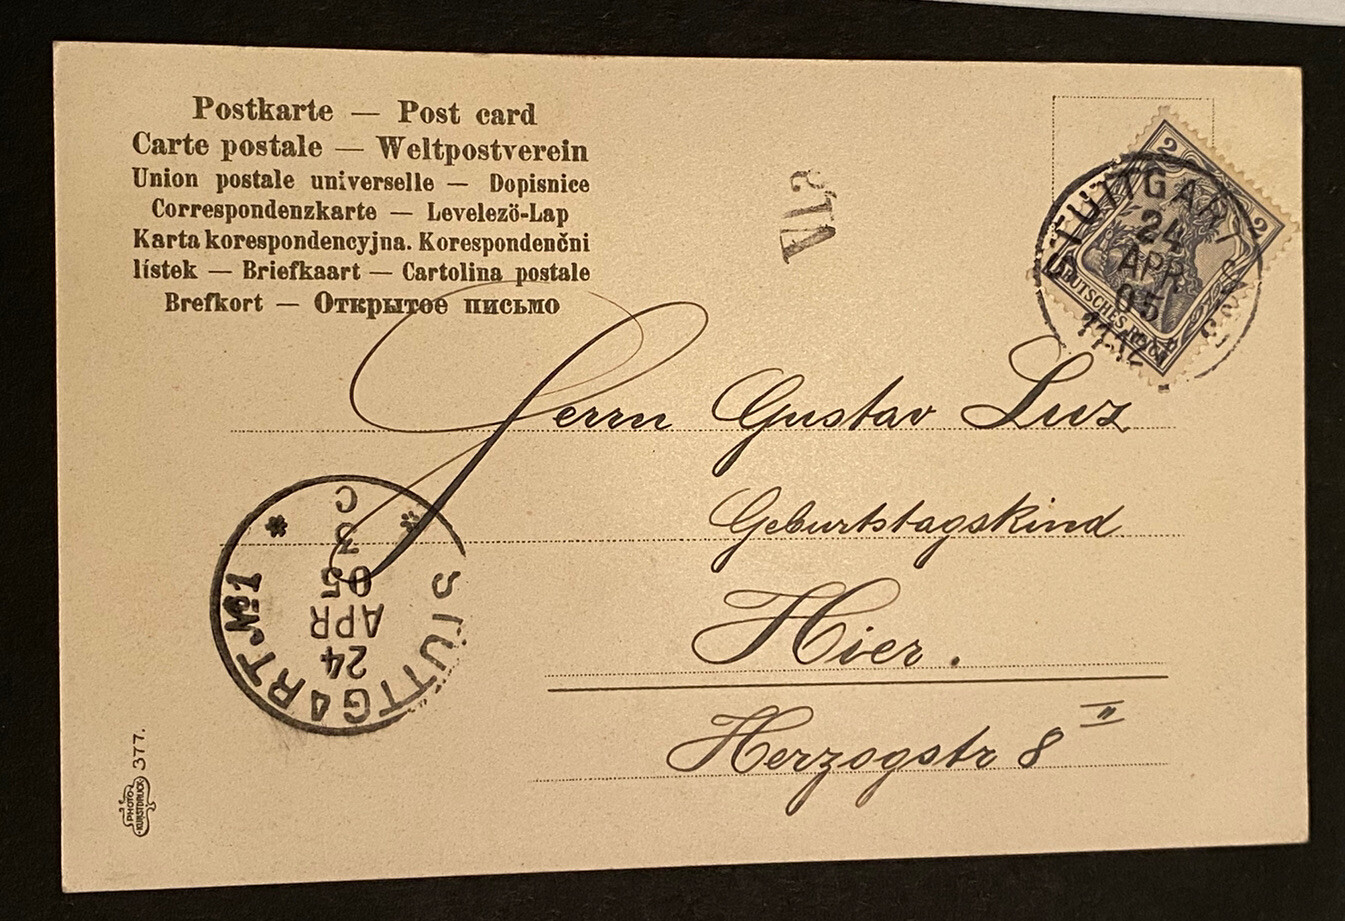 Postkarte — Post card
Carte postale — Weltpostverein
Union postale universelle — Dopisnice
Correspondenzkarte — Levelező-Lap
Karta korespondencyjna. Korespondenčni
lístek — Briefkaart — Cartolina postale
Brefkort — Открытое письмо
2 2
DEUTSCHES REICH
STUTTGART
24
APR
05
11-12
Herrn Gustav Luz
Geburtstagskind
Hier.
Herzogstr 8 II
STUTTGART №1
24
APR
05
3
C
377.
PHOTO